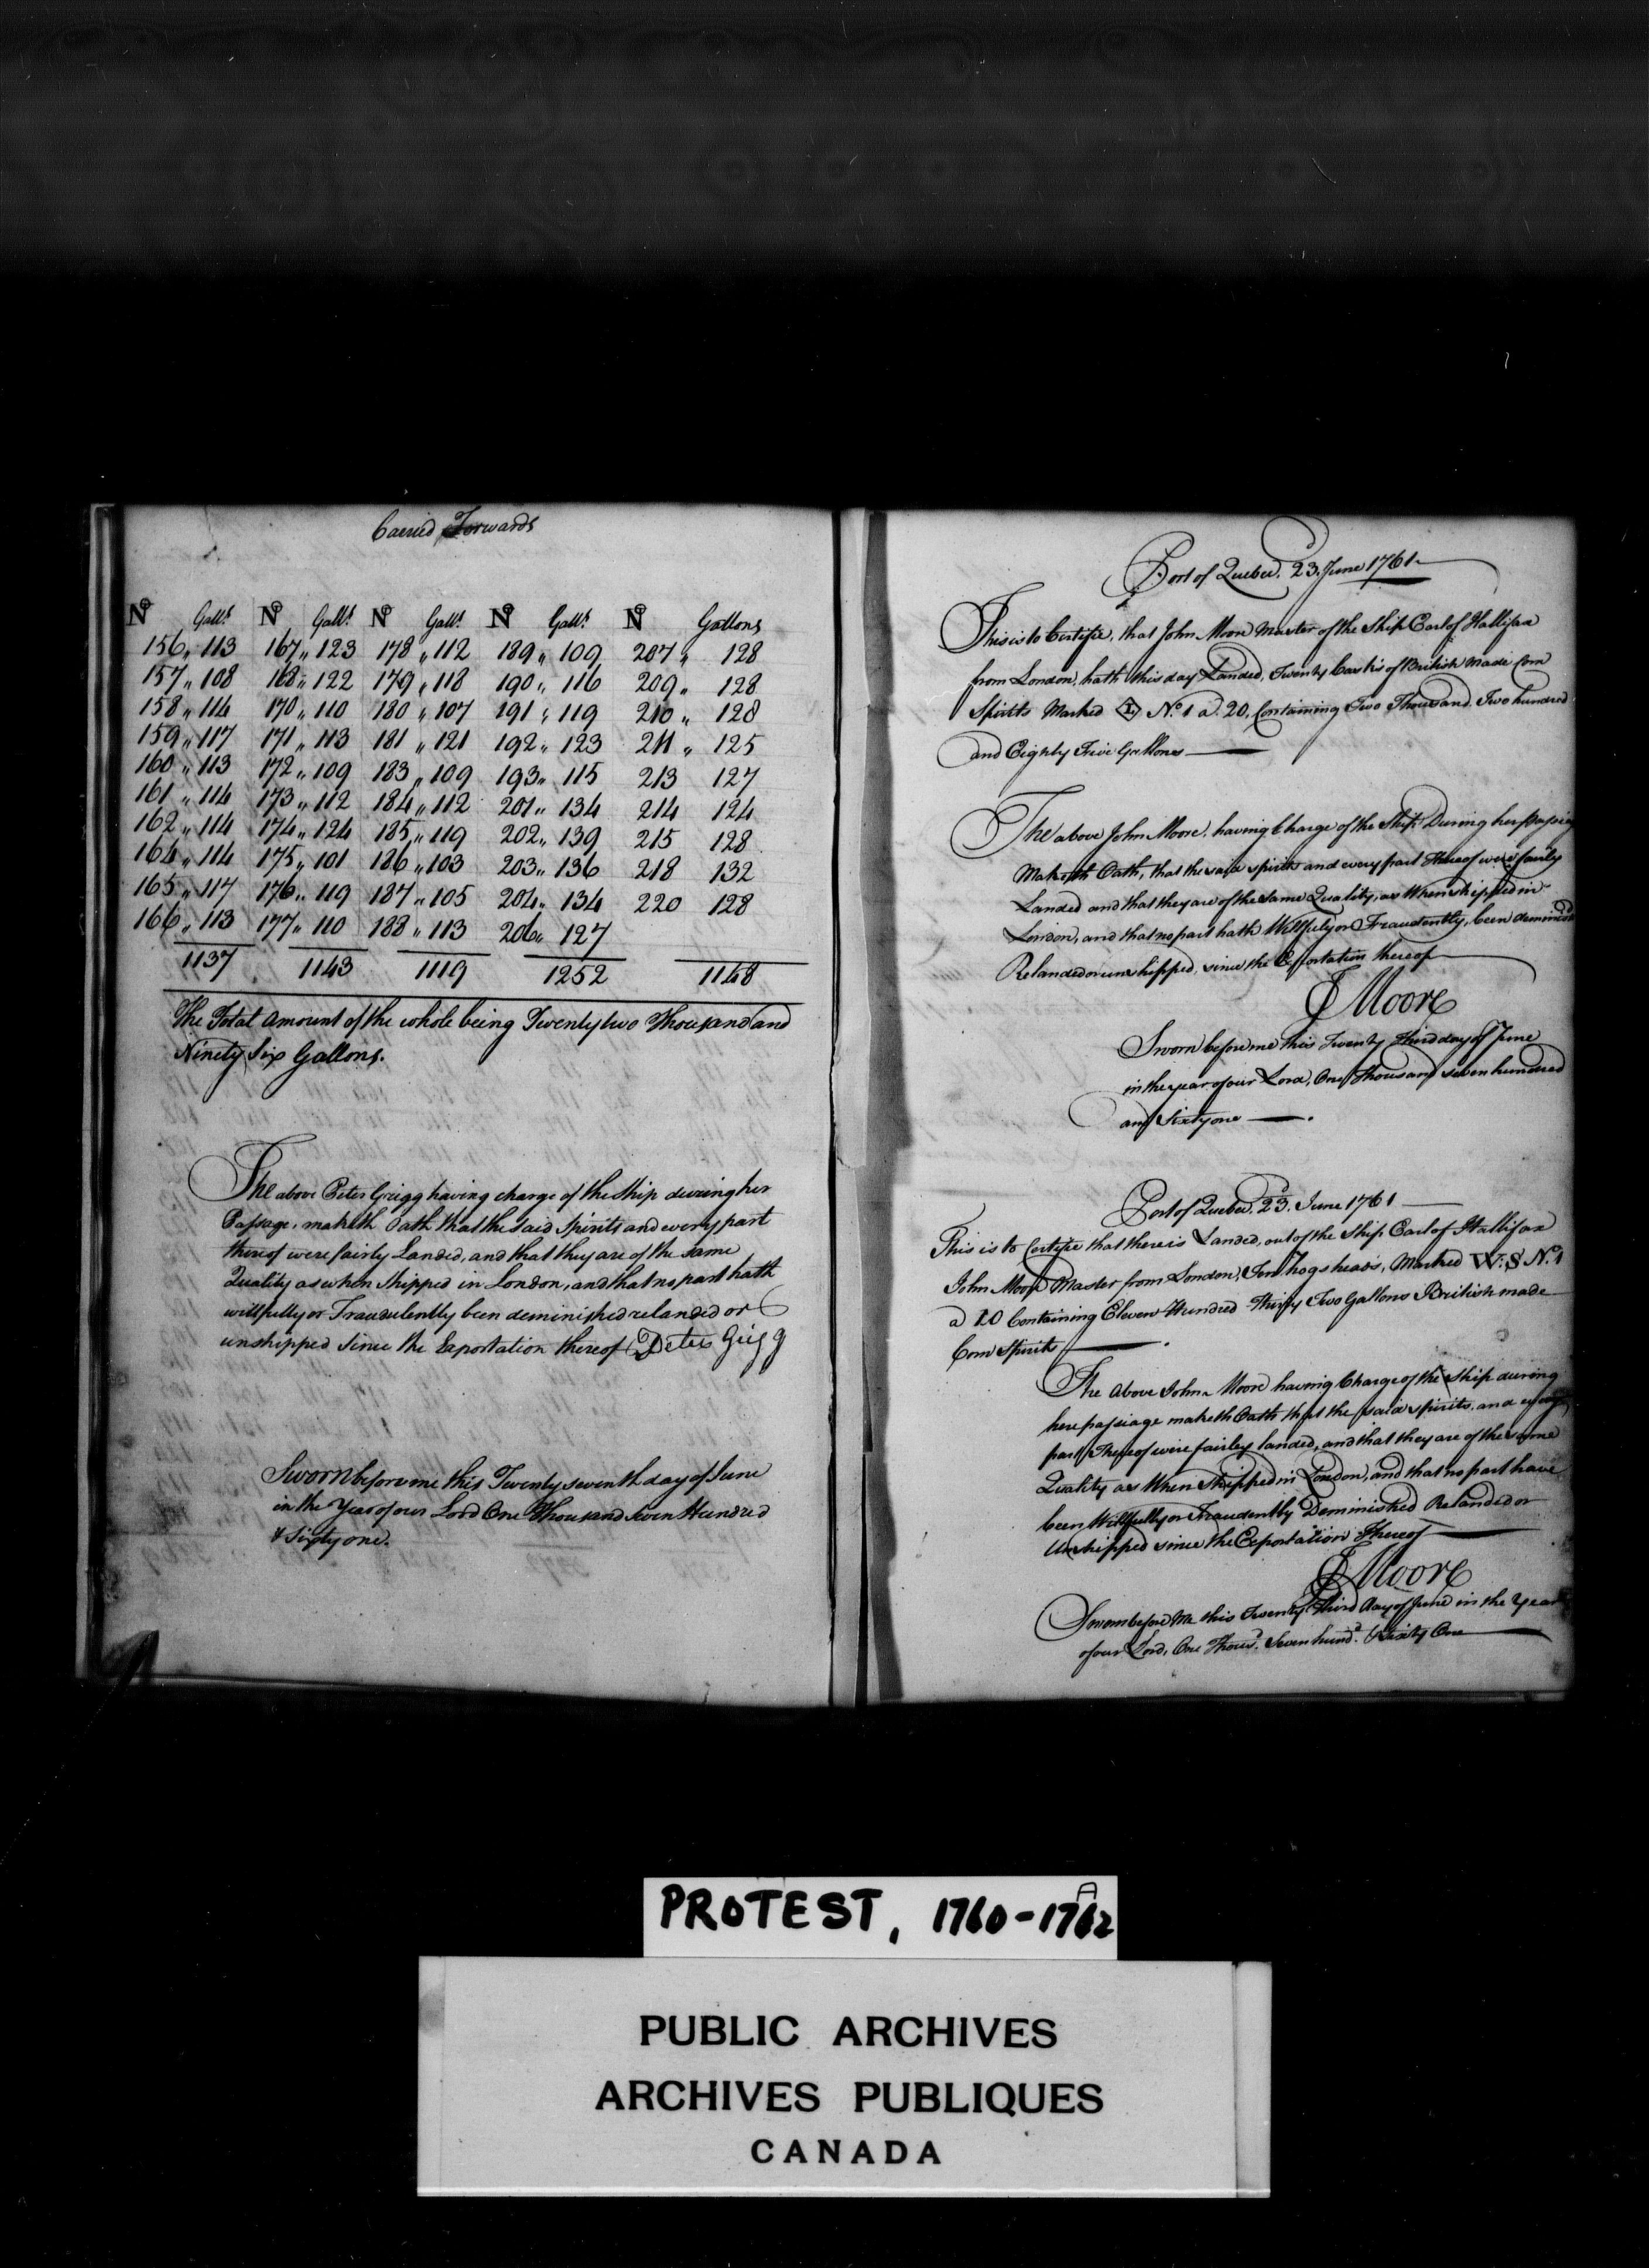 Carried Forwards
No Galls No Galls No Galls No Galls No Gallons
156 " 113 167 " 123 178 " 112 189 " 109 207 " 128
157 " 108 168 " 122 179 " 118 190 " 116 209 " 128
158 " 114 170 " 110 180 " 107 191 " 119 210 " 128
159 " 117 171 " 113 181 " 121 192 " 123 211 " 125
160 " 113 172 " 109 183 " 109 193 " 115 213 127
161 " 114 173 " 112 184 " 112 201 " 134 214 124
162 " 114 174 " 124 185 " 119 202 " 139 215 128
164 " 114 175 " 101 186 " 103 203 " 136 218 132
165 " 117 176 " 119 187 " 105 204 " 134 220 128
166 " 113 177 " 110 188 " 113 206 " 127
1137 1143 1119 1252 1148
The Total Amount of the whole being Twenty two Thousand and
Ninety Six Gallons.
The above Peter Grigg having charge of the Ship during her
Passage, maketh Oath that the said Spirits and every part
thereof were fairly Landed, and that they are of the same
Quality as when Shipped in London, and that no part hath
willfully or Fraudulently been deminished relanded or
unshipped Since the Exportation thereof Peter Grigg
Sworn before me this Twenty seventh day of June
in the Year of our Lord One Thousand Seven Hundred
& Sixty one.
Port of Quebec. 23. June 1761
This is to Certifie, that John Moore Master of the Ship Earl of Hallifax
from London, hath this day Landed, Twenty Casks of British made Corn
Spirits Marked No. 1 a 20, Containing Two Thousand, Two hundred
and Eighty Five Gallons
The above John Moore, having Charge of the Ship During her Passage
Maketh Oath, that the said spirits and every part thereof were fairly
Landed and that they are of the same Quality, as When shipped in
London, and that no part hath Willfuly or Fraudently, been deminished
Relanded or unshipped, since the Exportation thereof
J Moore
Sworn before me this Twenty Third day of June
in the year of our Lord, One Thousand seven hundred
and Sixty one .
Port of Quebec. 23. June 1761
This is to Certifie that there is Landed, out of the Ship Earl of Hallifax
John Moore Master from London, Ten Hogsheads, Marked W:S No. 1
a 10 Containing Eleven Hundred Thirty Two Gallons British made
Corn Spirits .
The Above John Moore having Charge of the Ship during
here passage maketh Oath that the said spirits, and every
part Thereof were fairley landed, and that they are of the same
Quality as When Shipped in London, and that no part have
been Willfully or Fraudently Deminished Relanded or
Unshipped since the Exportation Thereof
J Moore
Sworn before Me this Twenty Third day of June in the Year
of our Lord, One Thousd. Seven hundd. & Sixty One
PROTEST, 1760-1762
PUBLIC ARCHIVES
ARCHIVES PUBLIQUES
CANADA